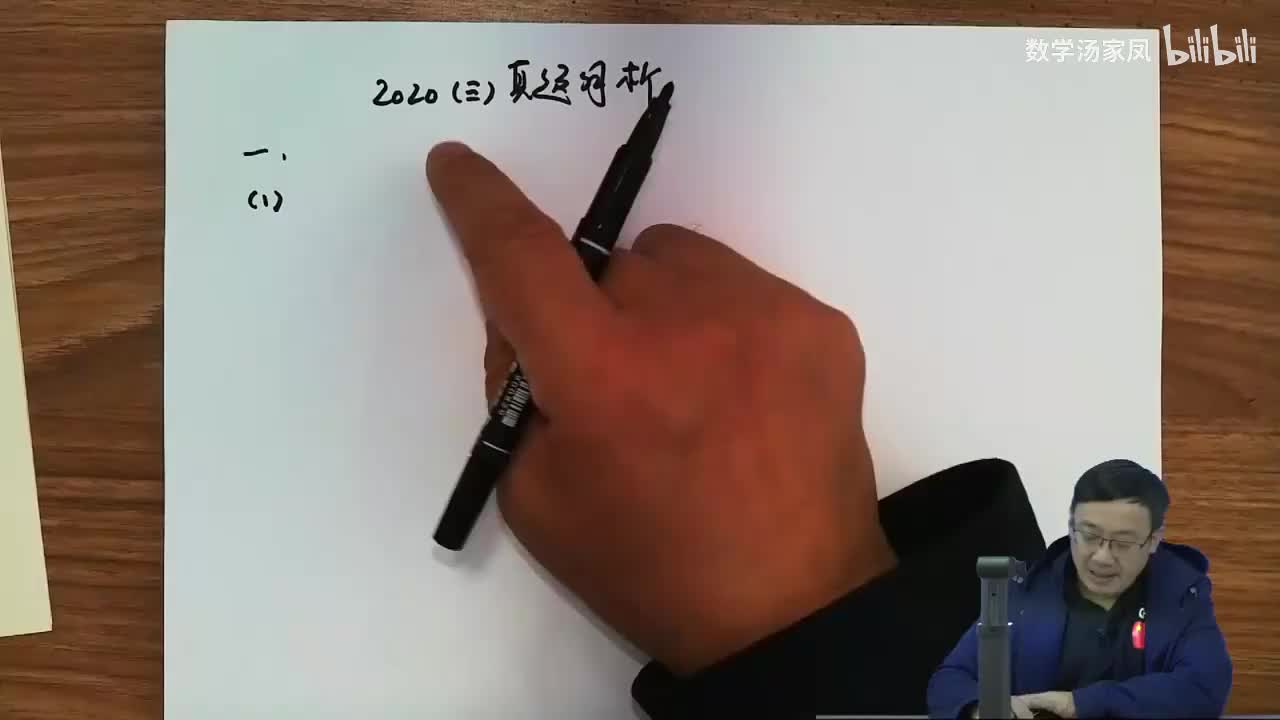 数学汤家凤 bilibili
2020(三)真题解析
一.
(1)